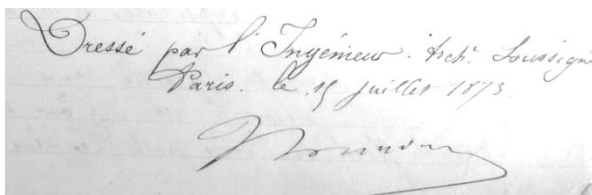 Dressé par l'Ingénieur. Archte Soussigné
Paris. le 15 juillet 1873.